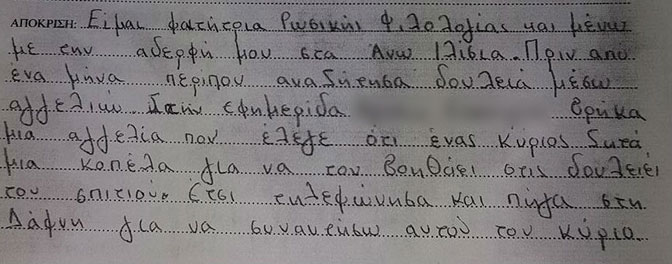 ΑΠΟΚΡΙΣΗ: Είμαι φοιτήτρια Ρωσικής Φιλολογίας και μένω
με την αδερφή μου στα Άνω Ιλίσια. Πριν από
ένα μήνα περίπου αναζήτησα δουλειά μέσω
αγγελιών. Στην εφημερίδα βρήκα
μια αγγελία που έλεγε ότι ένας κύριος ζητά
μια κοπέλα για να τον βοηθάει στις δουλειές
του σπιτιού. Έτσι τηλεφώνησα και πήγα στη
Δάφνη για να συναντήσω αυτού τον κύριο.